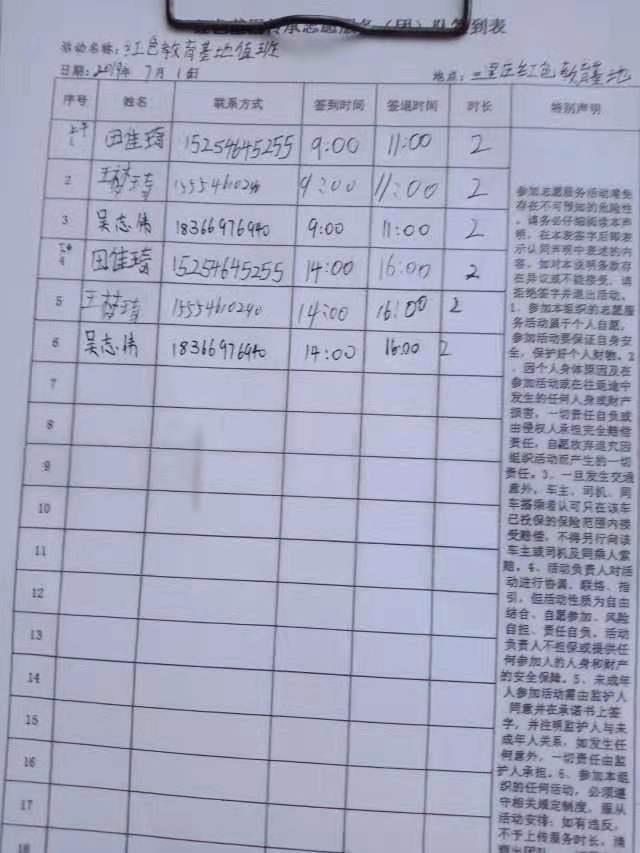 承志愿服务（团）队签到表
活动名称：红色教育基地值班
日期：2019年 7月 1日 地点：三里庄红色教育基地
序号 姓名 联系方式 签到时间 签退时间 时长 特别声明
上午 1 田佳琦 15254645255 9:00 11:00 2
2 15554610240 9:00 11:00 2
3 吴志伟 18366976940 9:00 11:00 2
下午 4 田佳琦 15254645255 14:00 16:00 2
5 15554610240 14:00 16:00 2
6 吴志伟 18366976940 14:00 16:00 2
7
8
9
10
11
12
13
14
15
16
17
18
参加志愿服务活动难免
存在不可预知的危险性
，请务必仔细阅读本声
明，在本表签字后即表
示认同声明中表述的内
容。如对本说明条款存
在异议或不能接受，请
拒绝签字并退出活动。
1、参加本组织的志愿服
务活动属于个人自愿，
参加活动要保证自身安
全，保护好个人财物。2
、因个人身体原因及在
参加活动或在往返途中
发生的任何人身或财产
损害，一切责任自负或
由侵权人承担完全赔偿
责任，自愿放弃追究因
组织活动而产生的一切
责任。3、一旦发生交通
意外，车主、司机、同
车搭乘者认可只在该车
已投保的保险范围内接
受赔偿，不得另行向该
车主或司机及同乘人索
赔。4、活动负责人对活
动进行协调、联络、指
引，但活动性质为自由
结合、自愿参加、风险
自担、责任自负。活动
负责人不担保或提供任
何参加人的人身和财产
的安全保障。5、未成年
人参加活动需由监护人
同意并在承诺书上签
字，并注明监护人与未
成年人关系，如发生任
何意外，一切责任由监
护人承担。6、参加本组
织的任何活动，必须遵
守相关规定制度，服从
活动安排；如有违反，
不予上传服务时长，清